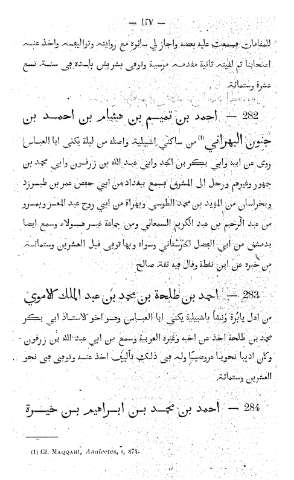 — ١٤٧ —
للمقامات فسمعت عليه بعضه واجاز لي سائره مع روايته وتواليفه واخذ عنه
اصحابنا ثم لقيته ثانية مقدمه مرسية وتوفي بشريش بلده في سنة تسع
عشرة وستمائة
282 — احمد بن تميم بن هشام بن احمد بن
حنون البهراني (1) من ساكني اشبيلية واصله من لبلة يكنى ابا العباس
روى عن ابيه وابي بكر بن الجد وابي عبد الله بن زرقون وابي محمد بن
جمهور وغيرهم ورحل الى المشرق فسمع ببغداد من ابي حفص عمر بن طبرزد
وبخراسان من المؤيد بن محمد الطوسي وبهراة من ابي روح عبد المعز وبمرو
من عبد الرحيم بن عبد الكريم السمعاني ومن جماعة غير هولاء وسمع ايضا
بدمشق من ابي الفضل الحرستاني وسواه وبها توفي قبل العشرين وستمائة
من خبره عن ابن نقطة وقال فيه ثقة صالح
283 — احمد بن طلحة بن محمد بن عبد الملك الاموي
من اهل يابرة ونشأ باشبيلية يكنى ابا العباس وهو اخو الاستاذ ابي بكر
محمد بن طلحة اخذ عن اخيه وغيره العربية وسمع من ابي عبد الله بن زرقون
وكان اديبا نحويا عروضيا وله في ذلك تأليف اخذ عنه وتوفي في نحو
العشرين وستمائة
284 — احمد بن محمد بن ابراهيم بن خيرة
(1) Cf. MAQQARI, Analectes, I, 874.